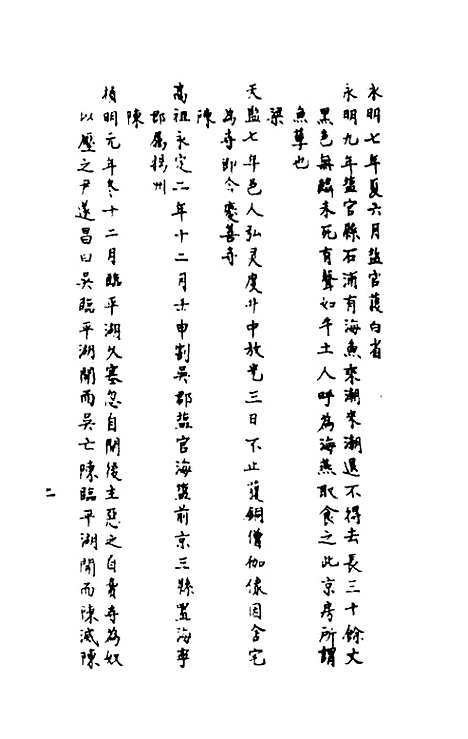 永明七年夏六月盐官蒦白省
永明九年盐官縣石浦有海魚來潮來潮退不得去長三十餘丈
黑色無鱗未死有聲如牛土人呼為海燕取食之此京房所謂
魚孽也
梁
天监七年邑人弘灵度井中放光三日不止蒦銅僧伽像因舍宅
為寺即今慶善寺
陳
高祖永定二年十二月壬申割吳郡盐官海盐前京三縣置海寧
郡屬揚州
陳
禎明元年冬十二月臨平湖久塞忽自開後主惡之自賣寺為奴
以壓之尹遂昌曰吳臨平湖開而吳亡陳臨平湖開而陳滅陳
二